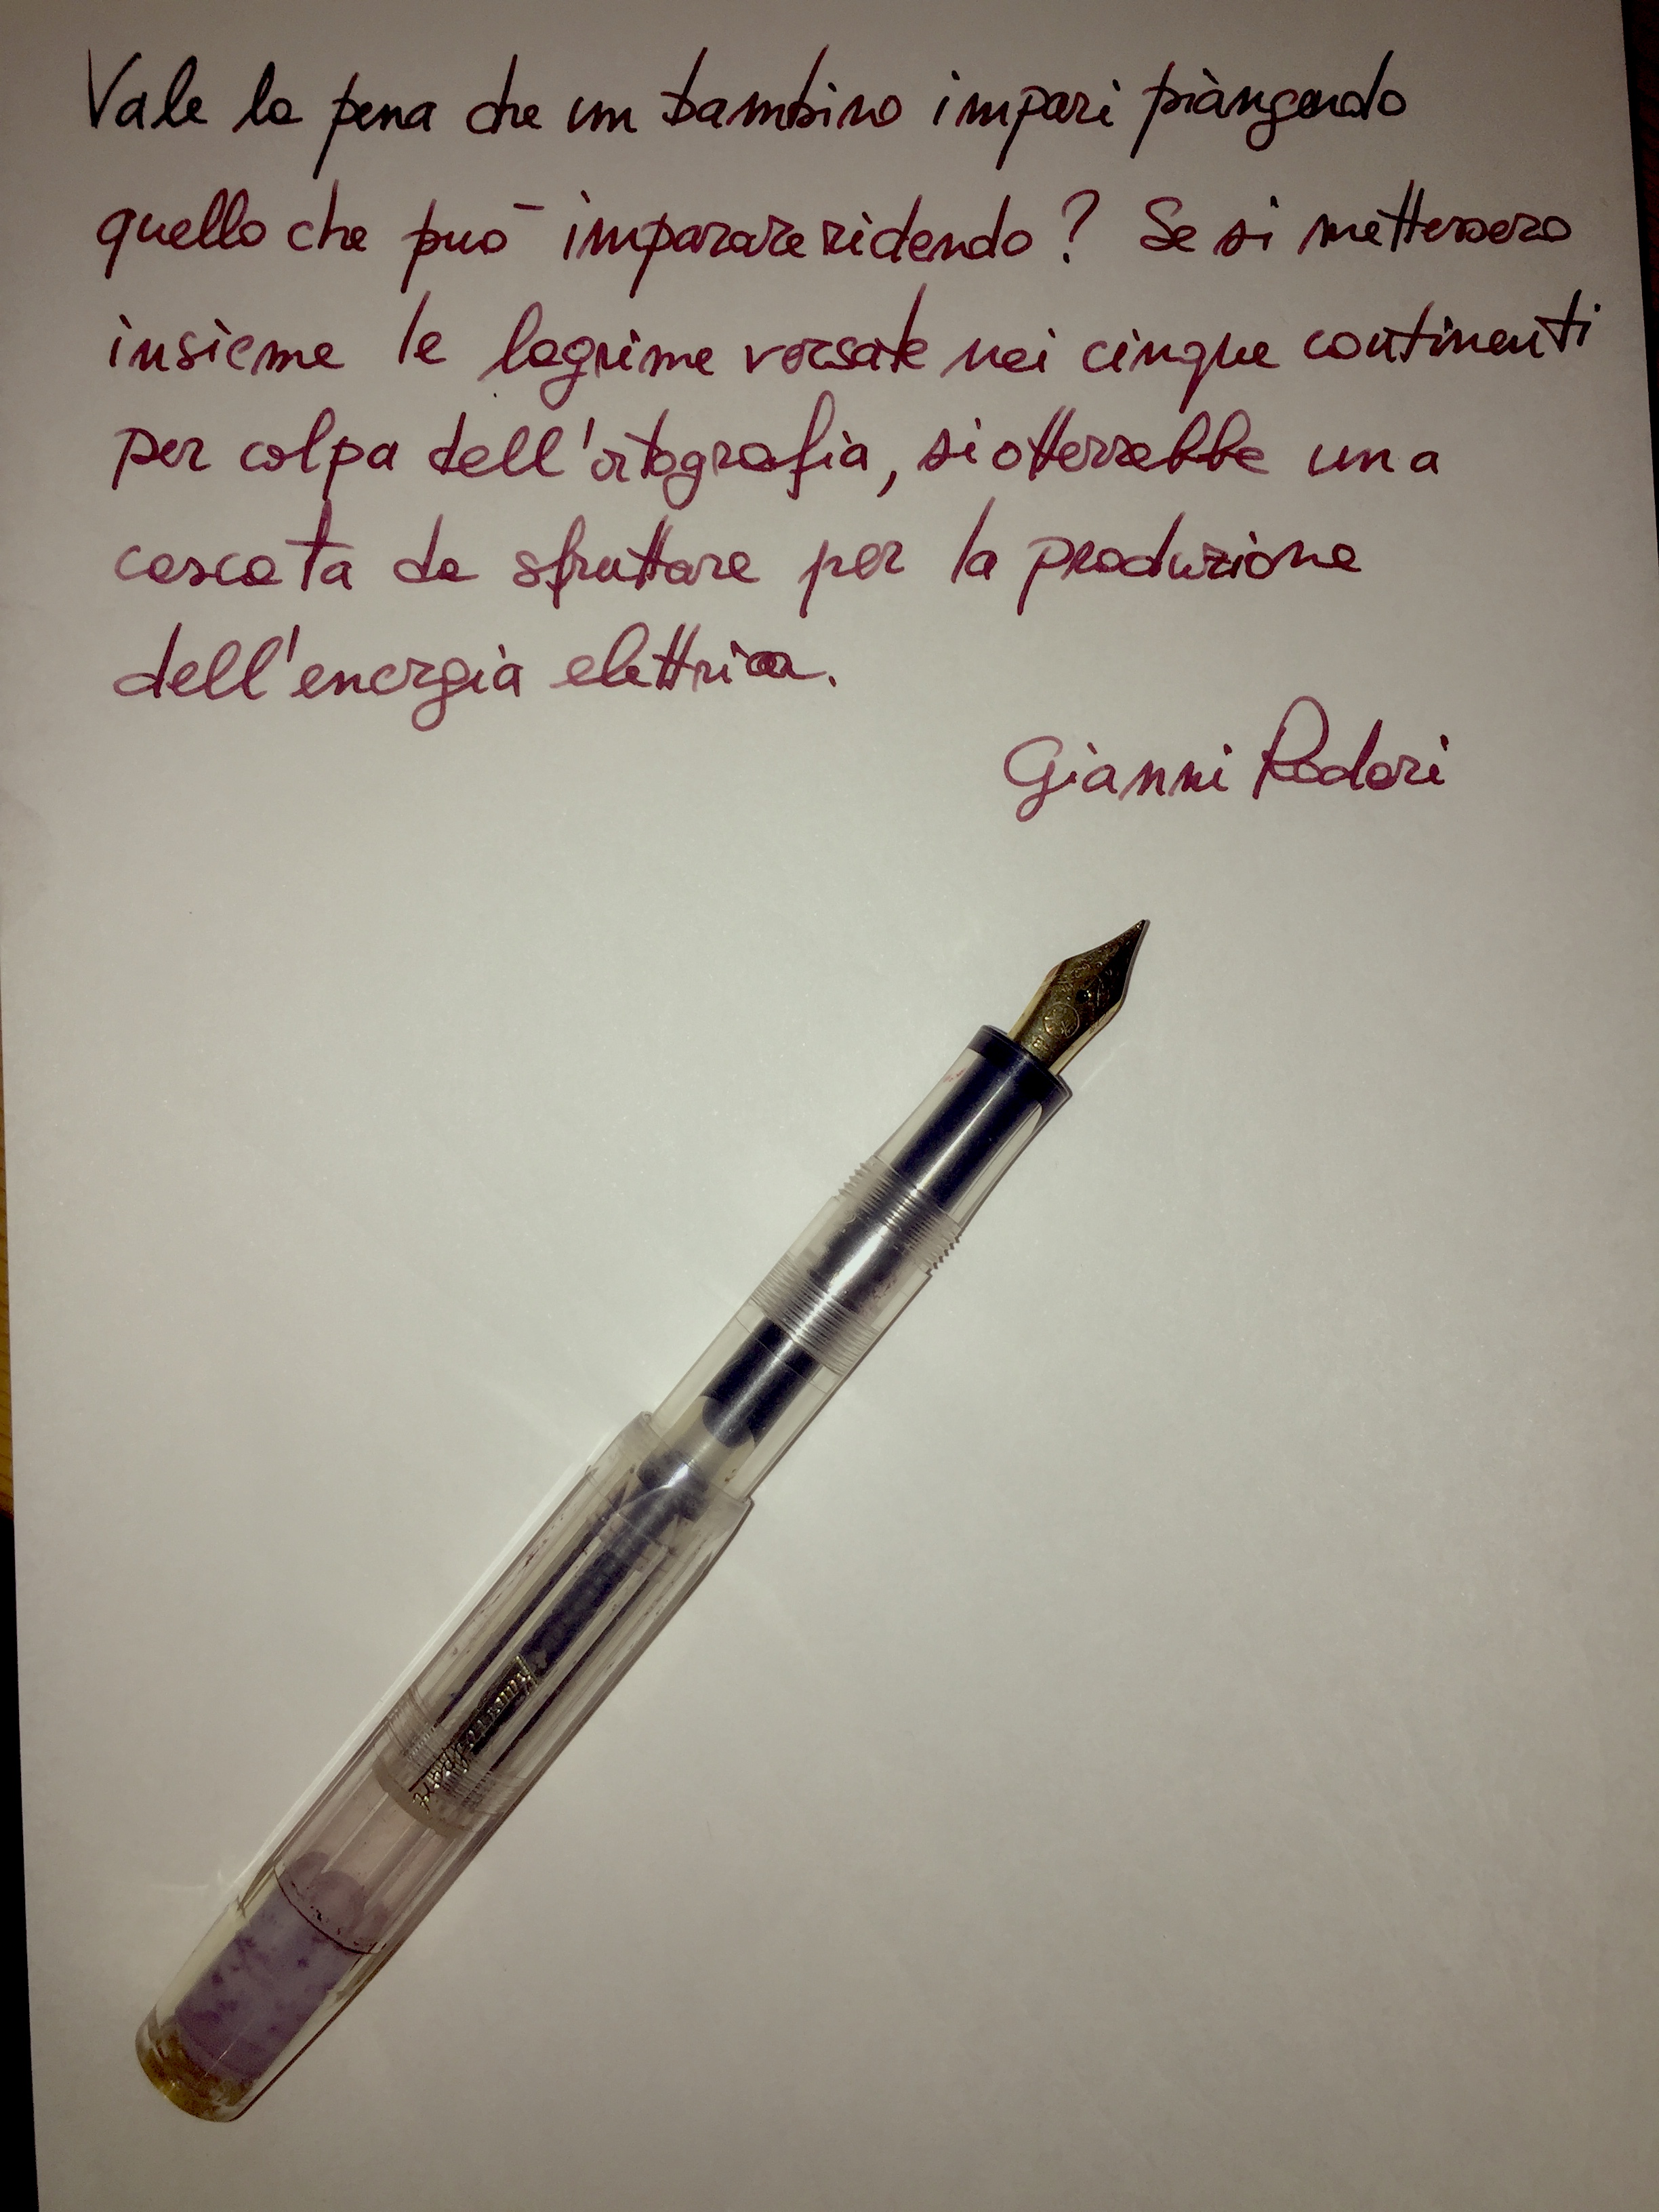 Vale la pena che un bambino impari piangendo
quello che può imparare ridendo? Se si mettessero
insieme le lagrime versate nei cinque continenti
per colpa dell'ortografia, si otterrebbe una
cascata da sfruttare per la produzione
dell'energia elettrica.
Gianni Rodari